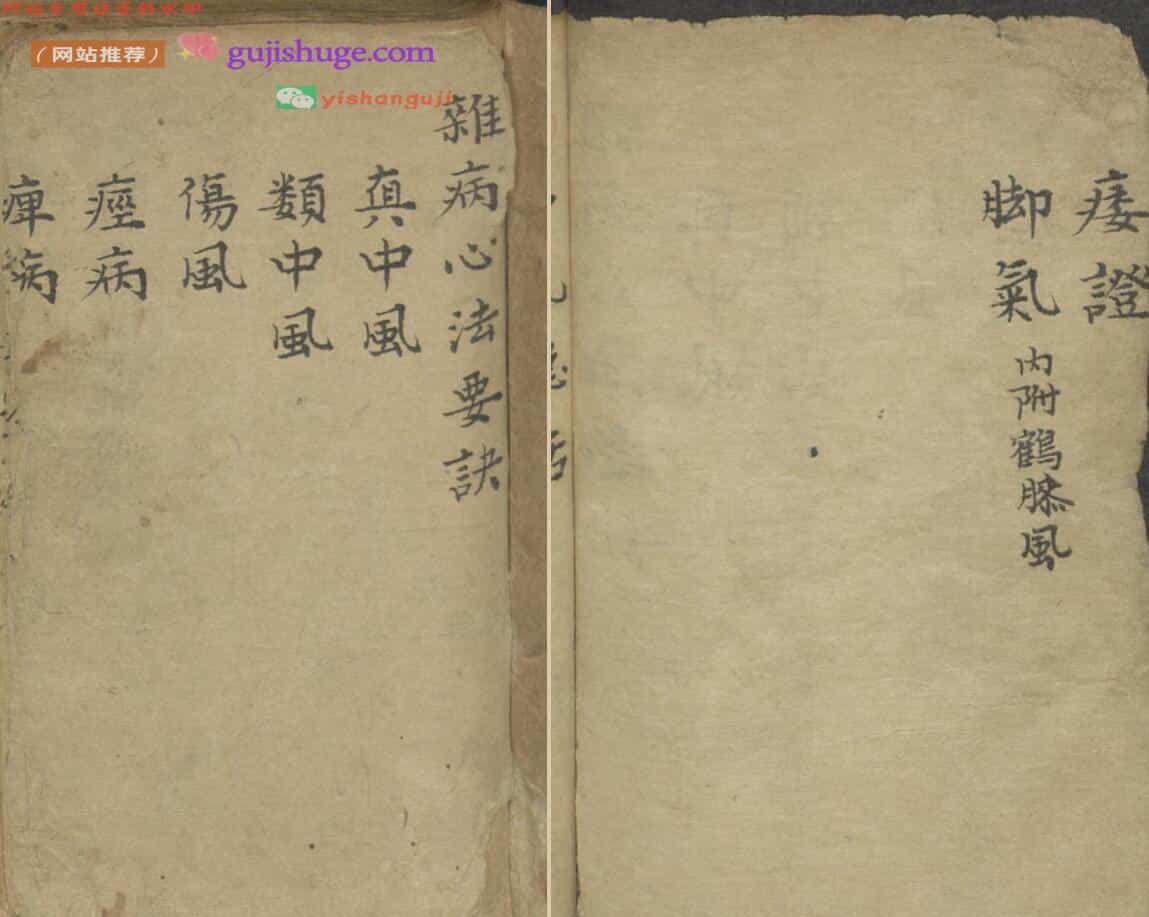 (网站推荐) gujishuge.com
yishanguji
雜病心法要訣
真中風
類中風
傷風
痙病
痺病
痿證
脚氣 内附鶴膝風